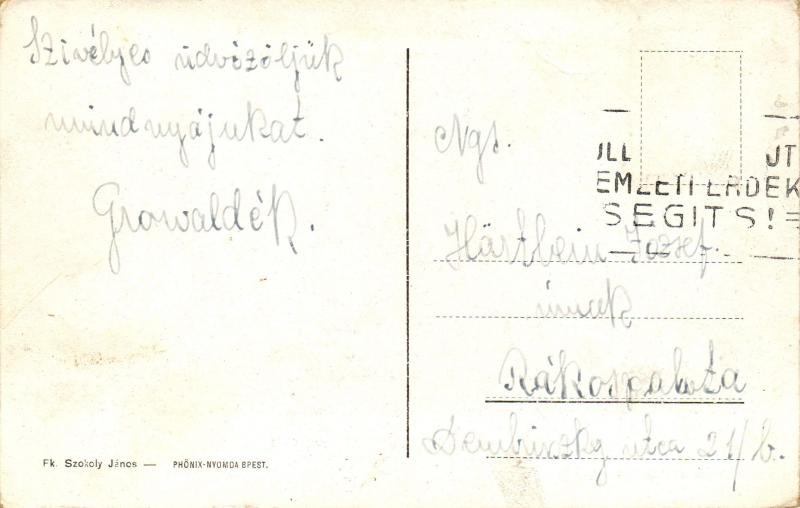 Szivélyes üdvözöljük
mindnyájukat.
Growaldék.
Fk. Szokoly János — PHÖNIX-NYOMDA BPEST.
ULL UT
EMZETI ÉRDEK
SEGITS!
Ngs.
Härtlein József
úrnak
Rákospalota
Dembinszky utca 21/b.